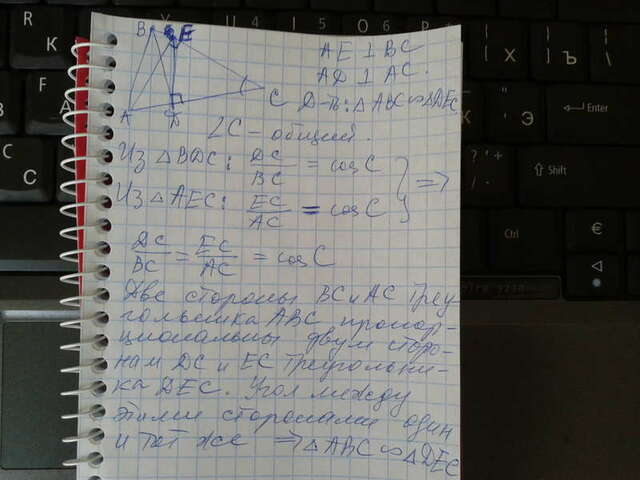 B E
AE ⊥ BC
AD ⊥ AC.
A D C Д-ть: △ABC ∾ △DEC
∠C – общий.
Из △BDC: DC/BC = cos C
Из △AEC: EC/AC = cos C } ⇒
DC/BC = EC/AC = cos C
Две стороны BC и AC треу-
гольника ABC пропор-
циональны двум сторо-
нам DC и EC треугольни-
ка DEC. Угол между
этими сторонами один
и тот же ⇒ △ABC ∾ △DEC
R К
F А
C С
U 4 I 5 O 6
Х
Ъ
Э
Enter
Shift
Ctrl
€